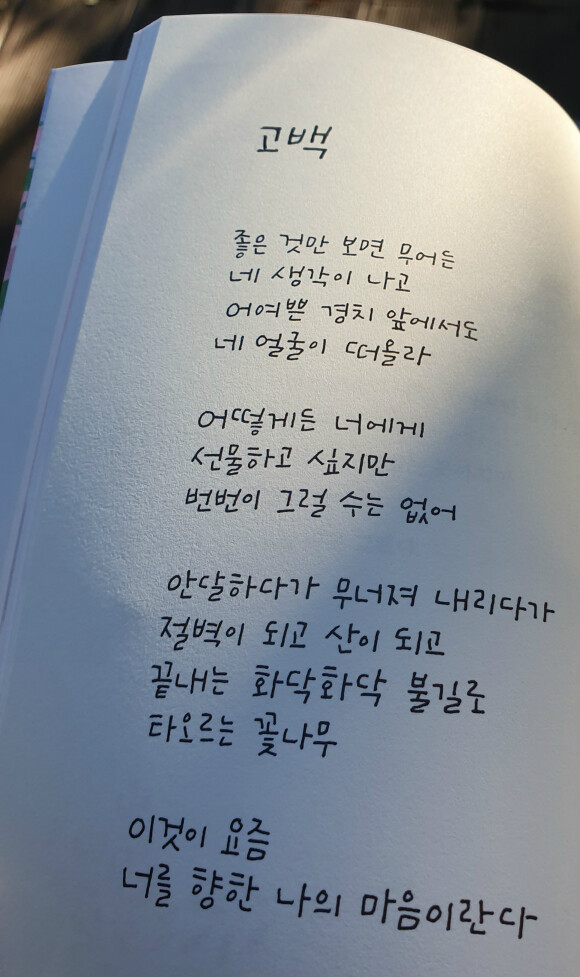 고백
좋은 것만 보면 무어든
네 생각이 나고
어여쁜 경치 앞에서도
네 얼굴이 떠올라
어떻게든 너에게
선물하고 싶지만
번번이 그럴 수는 없어
안달하다가 무너져 내리다가
절벽이 되고 산이 되고
끝내는 화닥화닥 불길로
타오르는 꽃나무
이것이 요즘
너를 향한 나의 마음이란다